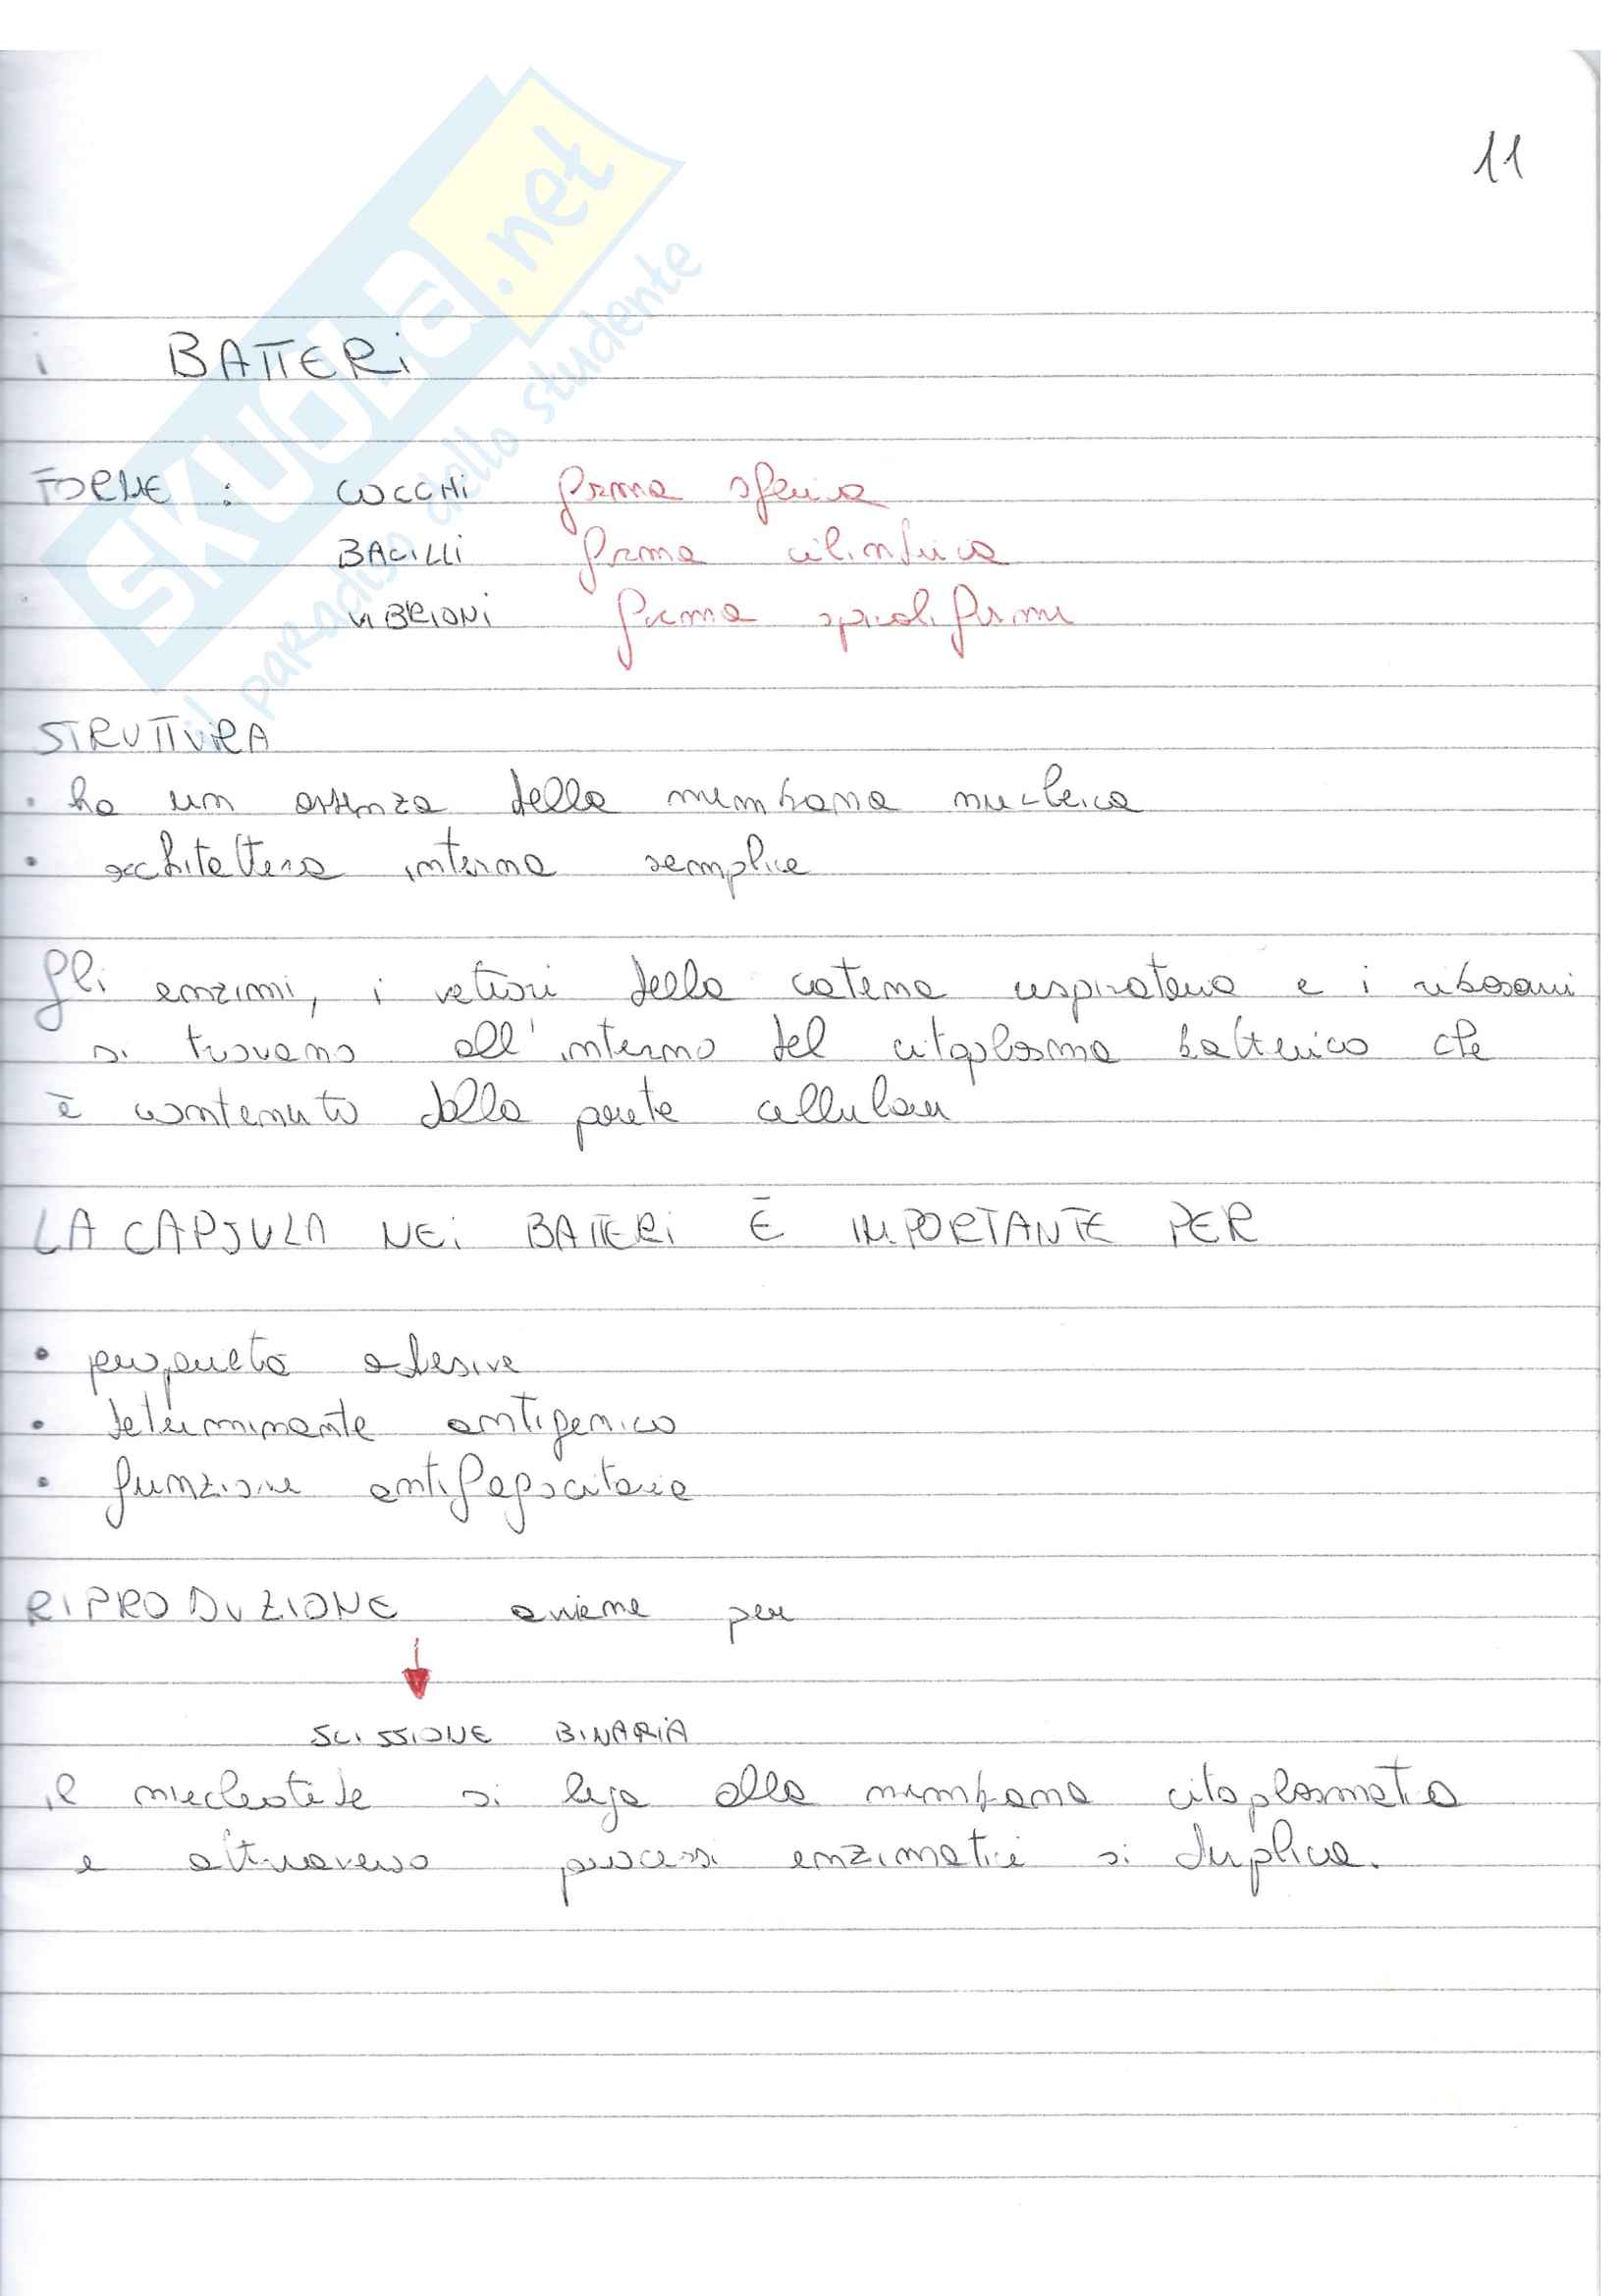 11
SKUOLA.net
il paradiso dello studente
i BATTERI
FORME : COCCHI forma sferica
BACILLI forma cilindrica
VIBRIONI forma spiraliforme
STRUTTURA
• ha un assenza della membrana nucleica
• architettura interna semplice
gli enzimi, i vettori della catena respiratoria e i ribosomi
si trovano all'interno del citoplasma batterico che
è contenuto dalla parete cellulare
LA CAPSULA NEI BATTERI È IMPORTANTE PER
• proprietà adesive
• determinante antigenico
• funzione antifagocitaria
RIPRODUZIONE avviene per
SCISSIONE BINARIA
il nucleotide si lega alla membrana
e attraverso processi enzimatici si duplica.